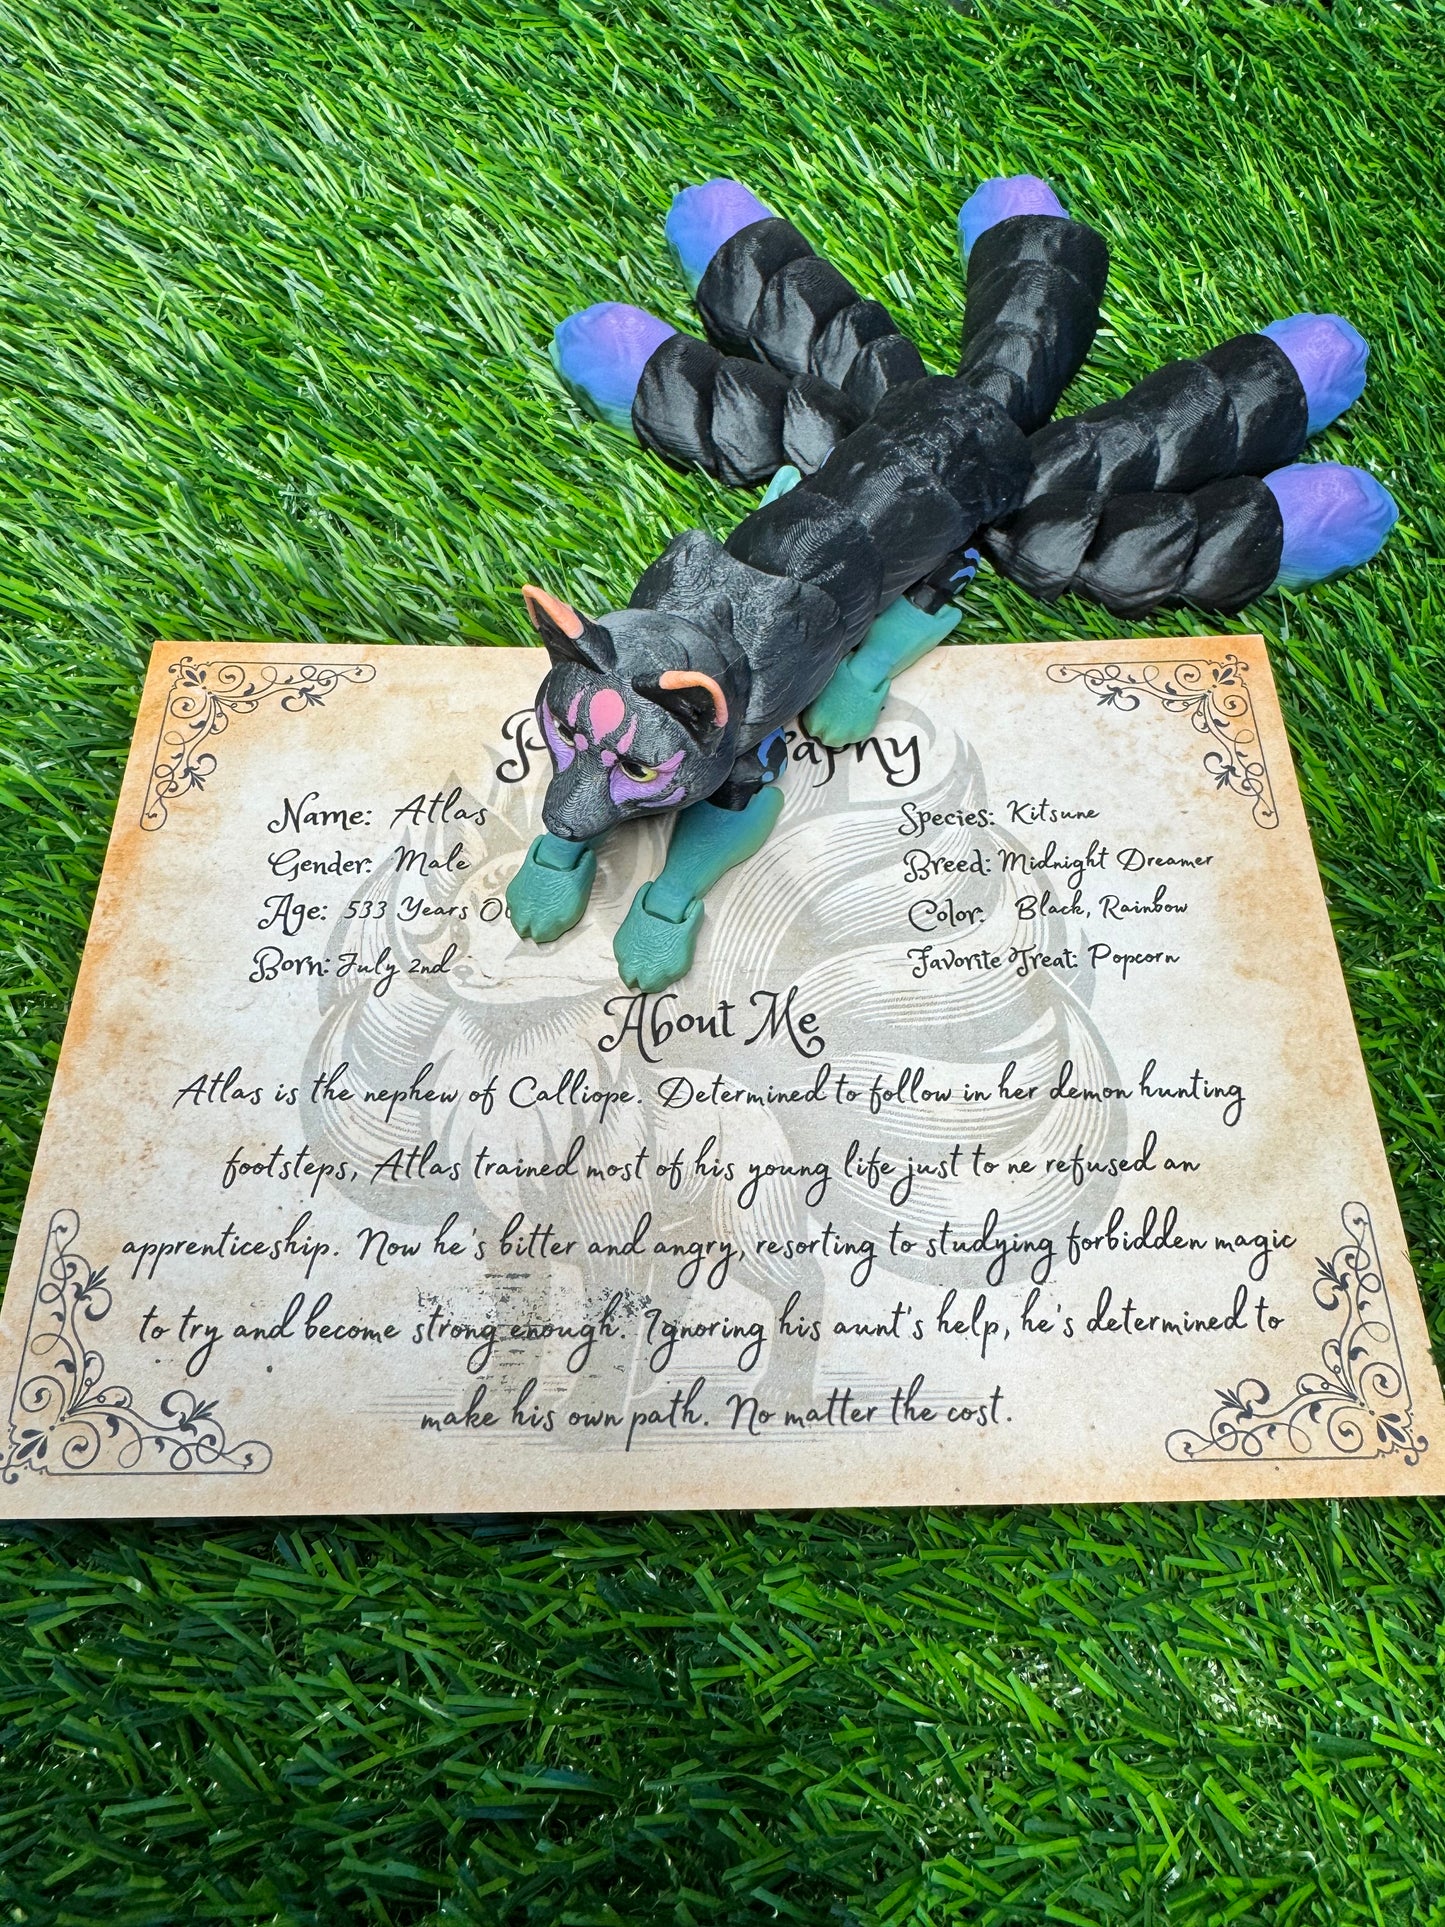 Name: Atlas
Species: Kitsune
Gender: Male
Breed: Midnight Dreamer
Age: 533 Years
Color: Black, Rainbow
Born: July 2nd
Favorite Treat: Popcorn
About Me
Atlas is the nephew of Calliope. Determined to follow in her demon hunting
footsteps, Atlas trained most of his young life just to ne refused an
apprenticeship. Now he's bitter and angry, resorting to studying forbidden magic
to try and become strong enough. Ignoring his aunt's help, he's determined to
make his own path. No matter the cost.